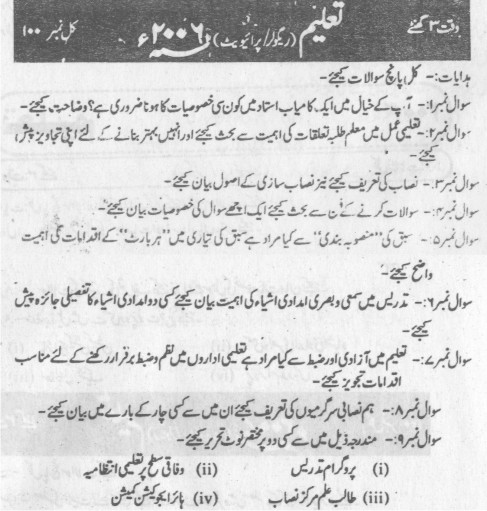 وقت ۳ گھنٹے
تعلیم (ریگولر/پرائیویٹ) سنہ ۲۰۰۶ء
کل نمبر ۱۰۰
ہدایات:- کل پانچ سوالات کیجئے-
سوال نمبر۱:- آپ کے خیال میں ایک کامیاب استاد میں کون سی خصوصیات کا ہونا ضروری ہے؟ وضاحت کیجئے-
سوال نمبر۲:- تعلیمی عمل میں معلم طلبہ تعلقات کی اہمیت سے بحث کیجئے اور انہیں بہتر بنانے کے لئے اپنی تجاویز پیش
کیجئے-
سوال نمبر۳:- نصاب کی تعریف کیجئے نیز نصاب سازی کے اصول بیان کیجئے-
سوال نمبر۴:- سوالات کرنے کے فن سے بحث کیجئے ایک اچھے سوال کی خصوصیات بیان کیجئے-
سوال نمبر۵:- سبق کی "منصوبہ بندی" سے کیا مراد ہے سبق کی تیاری میں "ہر بارٹ" کے اقدامات کی اہمیت
واضح کیجئے-
سوال نمبر۶:- تدریس میں سمعی و بصری امدادی اشیاء کی اہمیت بیان کیجئے کسی دو امدادی اشیاء کا تفصیلی جائزہ پیش
کیجئے-
سوال نمبر۷:- تعلیم میں آزادی اور ضبط سے کیا مراد ہے تعلیمی اداروں میں نظم و ضبط برقرار رکھنے کے لئے مناسب
اقدامات تجویز کیجئے-
سوال نمبر۸:- ہم نصابی سرگرمیوں کی تعریف کیجئے ان میں سے کسی چار کے بارے میں بیان کیجئے-
سوال نمبر۹:- مندرجہ ذیل میں سے کسی دو پر مختصر نوٹ تحریر کیجئے-
(i) پروگرام تدریس (ii) وفاقی سطح پر تعلیمی انتظامیہ
(iii) طالب علم مرکز نصاب (iv) ہائر ایجوکیشن کمیشن